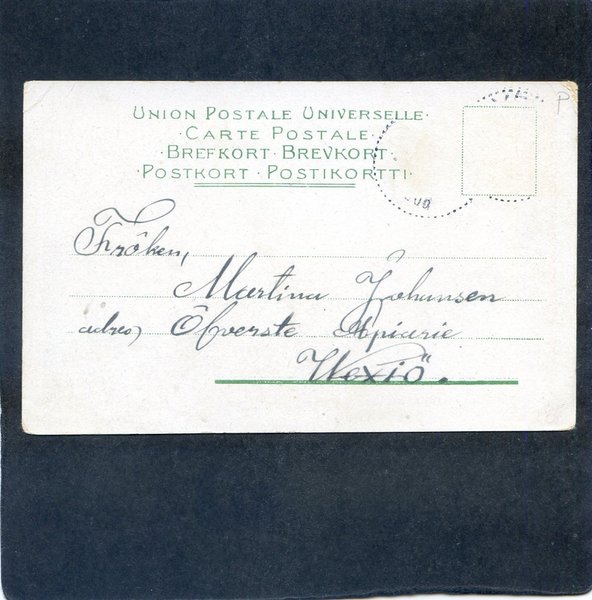 UNION POSTALE UNIVERSELLE·
·CARTE POSTALE·
·BREFKORT·BREVKORT·
·POSTKORT·POSTIKORTTI·
P
Fröken,
Martina Johansen
adres, Öfverste Apiarie
Wexiö.